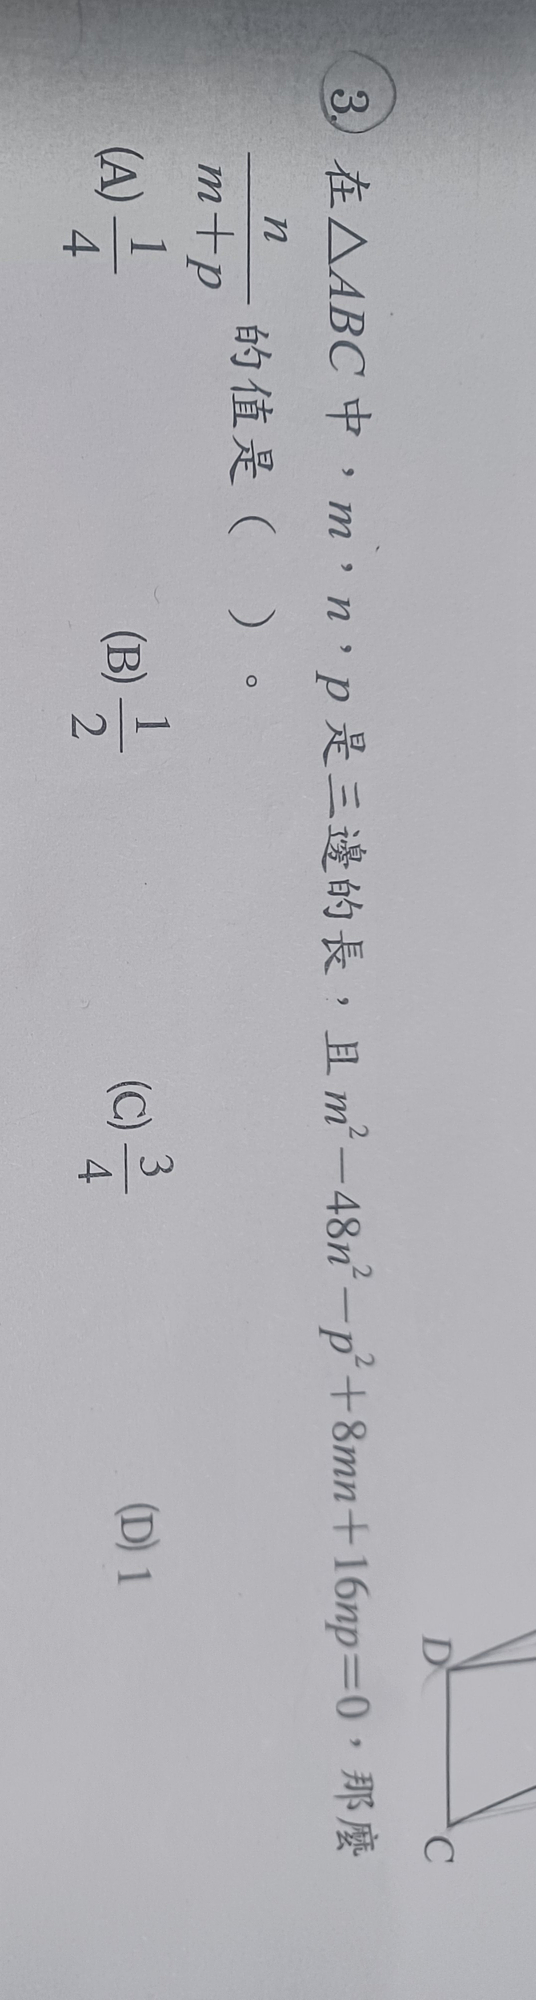 3. 在△ABC中，m，n，p是三邊的長，且m²−48n²−p²+8mn+16np=0，那麼
n/(m+p) 的值是（　）。
(A) 1/4　(B) 1/2　(C) 3/4　(D) 1
D　C